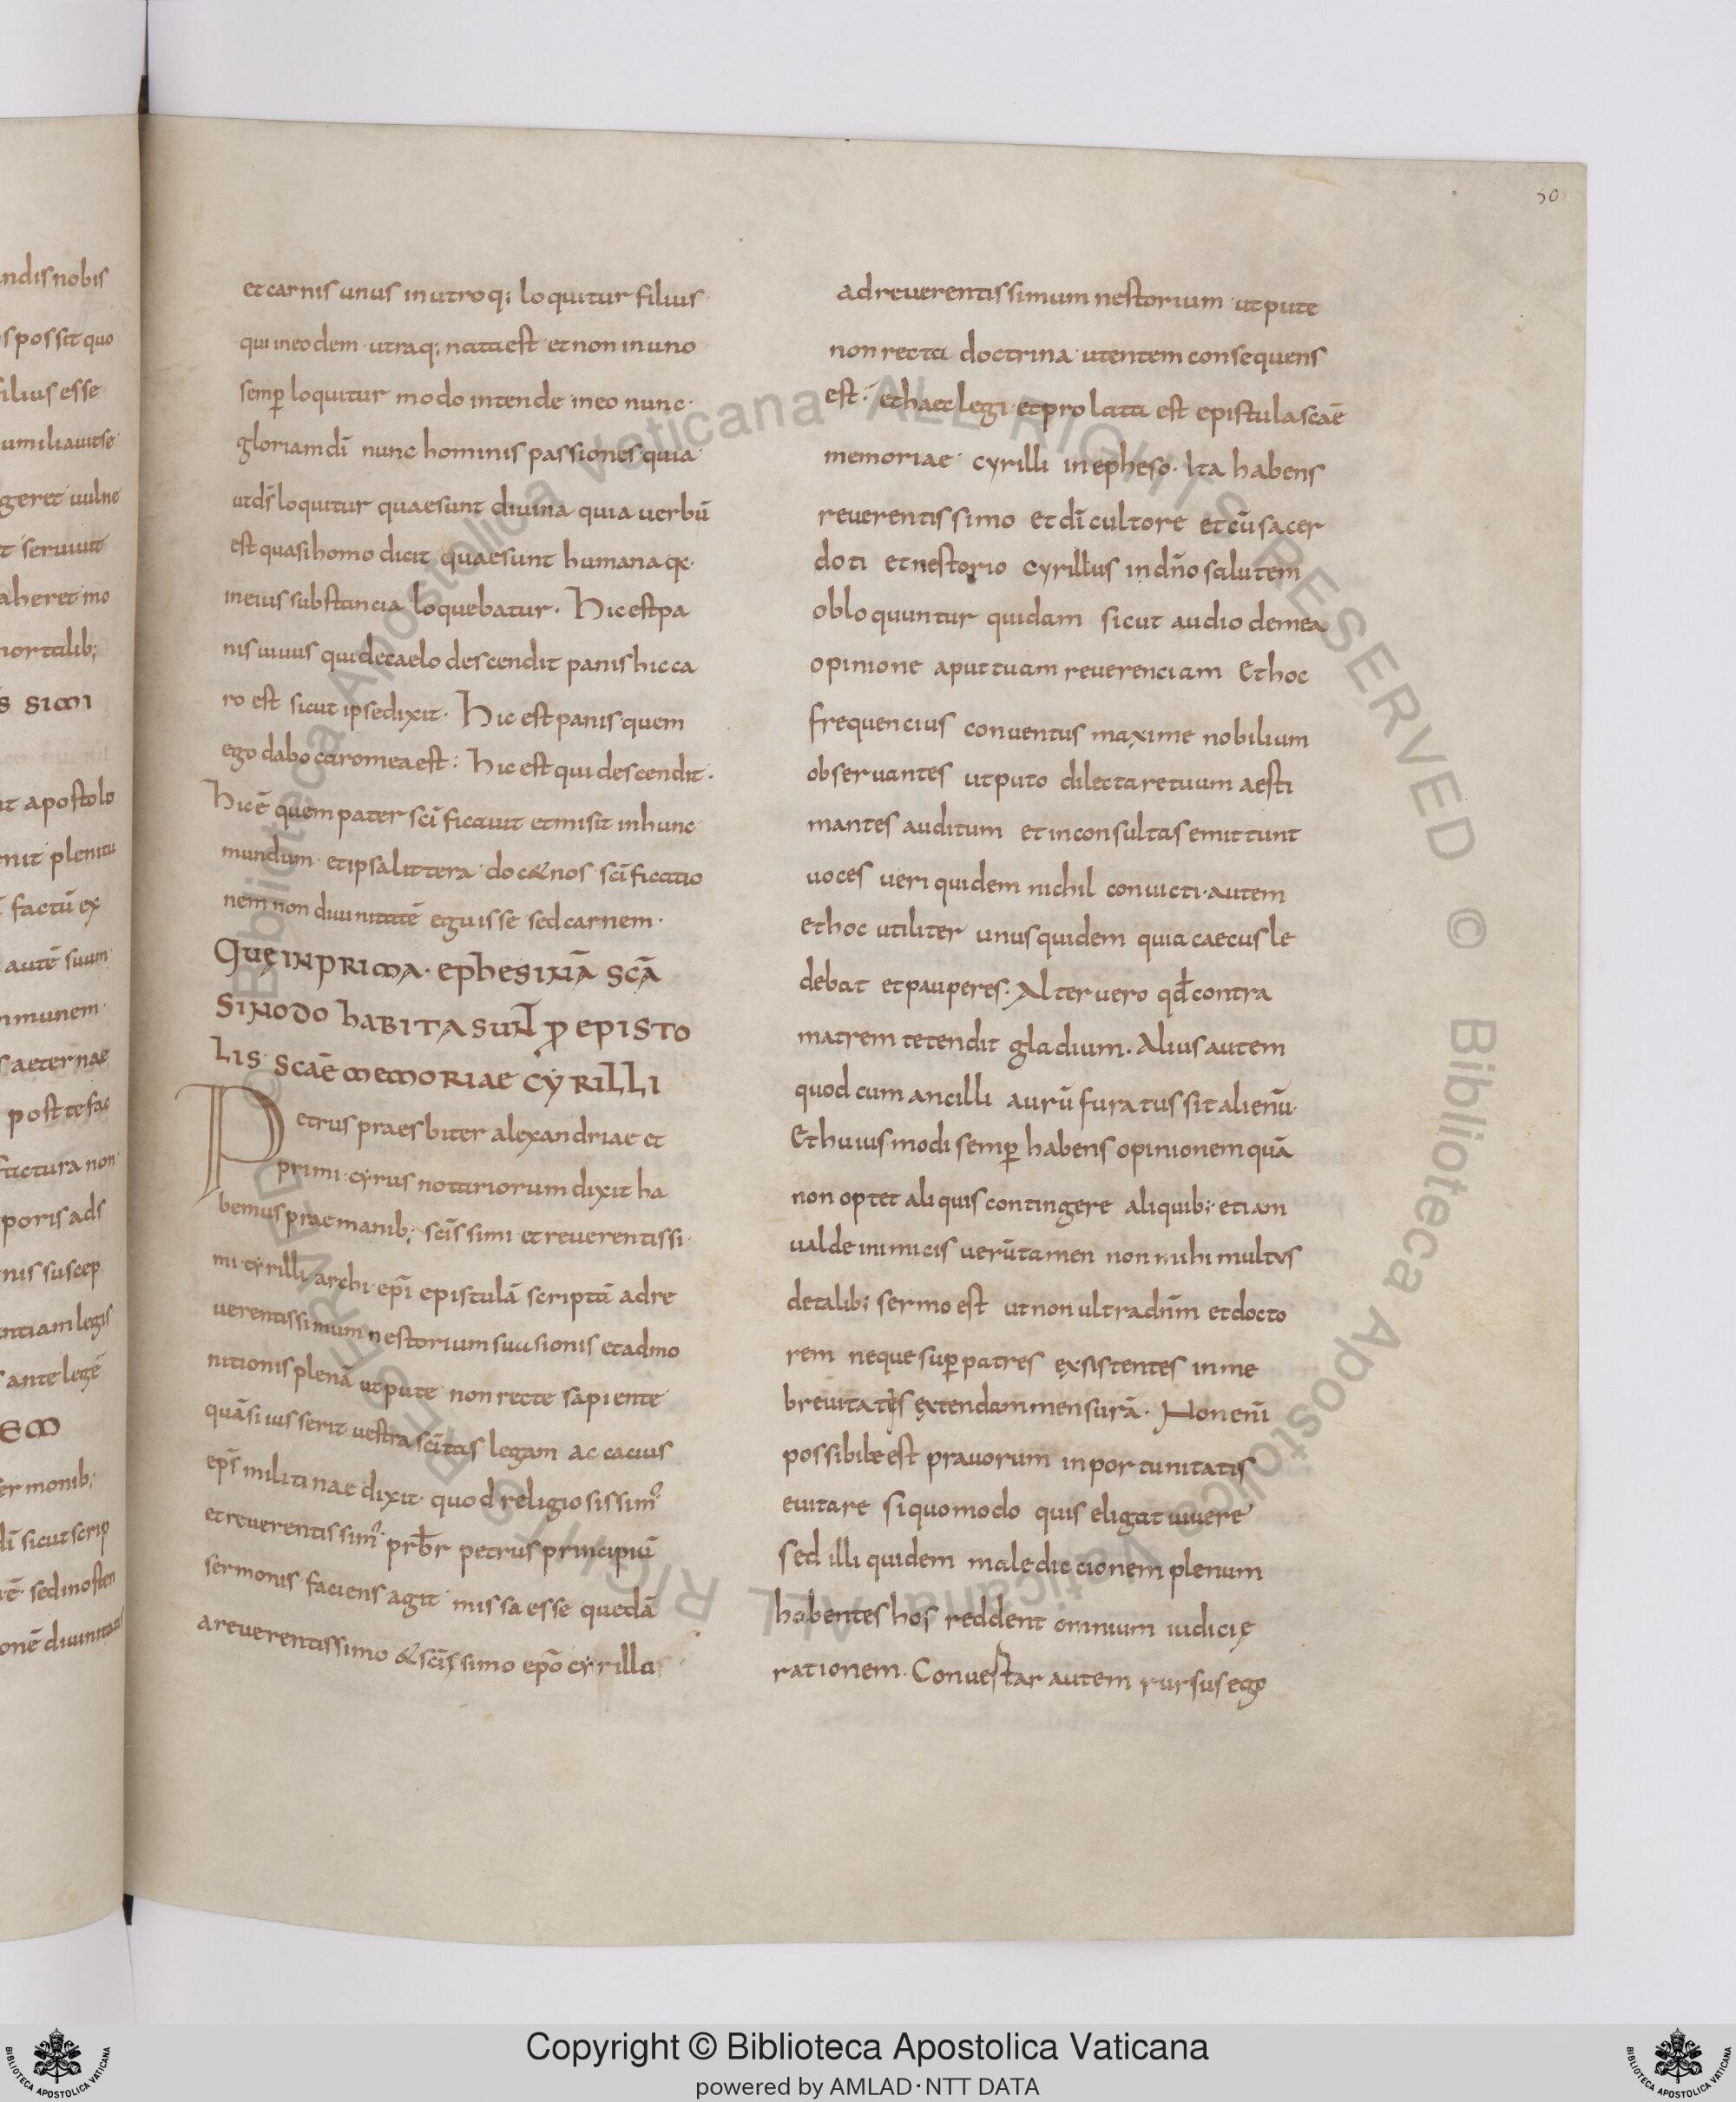 ndis nobis
s possit quo
filius esse
umiliauit se
geret uulne
t seruiuit
aheret mo
mortalib;
apostolo
enit plenitu
factū ex
autē suum
mmunem
s aeternae
post te fac
factura non
poris ads
nis suscep
antiam legis
ante legē
sermonib;
dī sicut scrip
sed inosten
onē diuinitatis
50
et carnis unus in utroq; loquitur filius
qui in eodem utraq; nata est et non in uno
semꝑ loquitur modo intende in eo nunc
gloriam dī nunc hominis passiones quia
ut dś loquitur quae sunt diuina quia uerbū
est quasi homo dicit quae sunt humana q;
in eius substancia loquebatur. Hic est pa
nis uiuus qui de caelo descendit panis hic ca
ro est sicut ipse dixit. Hic est panis quem
ego dabo caro mea est: hic est qui descendit.
Hic ē quem pater scīficauit et misit in hunc
mundum et ipsa littera doc& nos scīficatio
nem non diuinitatē eguisse sed carnem.
Quę in prima. ephesinā scā
sinodo habita sunt ꝓ episto
lis scāe memoriae cyrilli
Petrus praesbiter alexandriae et
primi cyrus notariorum dixit ha
bemus prae manib; scīssimi et reuerentissi
mi cyrilli archi epī epistulā scriptā ad re
uerentissimum nestorium suasionis et admo
nitionis plenā ut pute non recte sapiente
quā si iusserit uestra scītas legam acacius
epś militinae dixit quod religiosissim᾽
et reuerentissim᾽ prb̄r petrus principiū
sermonis faciens agit missa esse quedā
a reuerentissimo & scīssimo epō cyrillo
ad reuerentissimum nestorium ut pute
non recta doctrina utentem consequens
est: et haec legi et prolata est epistula scāe
memoriae cyrilli in epheso. Ita habens
reuerentissimo et dī cultore et cū sacer
doti et nestorio cyrillus in dn̄o salutem
obloquuntur quidam sicut audio de mea
opinione aput tuam reuerenciam Et hoc
frequencius conuentus maxime nobilium
obseruantes ut puto dilectare tuum aesti
mantes auditum et inconsultas emittunt
uoces ueri quidem nichil conuicti autem
et hoc utiliter unus quidem quia caecus le
debat et pauperes. Alter uero qd̄ contra
matrem tetendit gladium. Alius autem
quod cum ancilli aurū furatus sit alienū
Et huiusmodi semꝑ habens opinionem quā
non optet aliquis contingere aliquib; etiam
ualde inimicis uerūtamen non mihi multus
de talib; sermo est ut non ultra dn̄m et docto
rem neque suꝑ patres exsistentes in me
breuitatęs extendam mensurā. Non enī
possibile est prauorum inportunitatis
euitare si quomodo quis eligat uiuere
sed illi quidem maledictionem plenum
habentes hos reddent omnium iudicię
rationem. Conuestar autem rursus ego
Copyright © Biblioteca Apostolica Vaticana
powered by AMLAD·NTT DATA